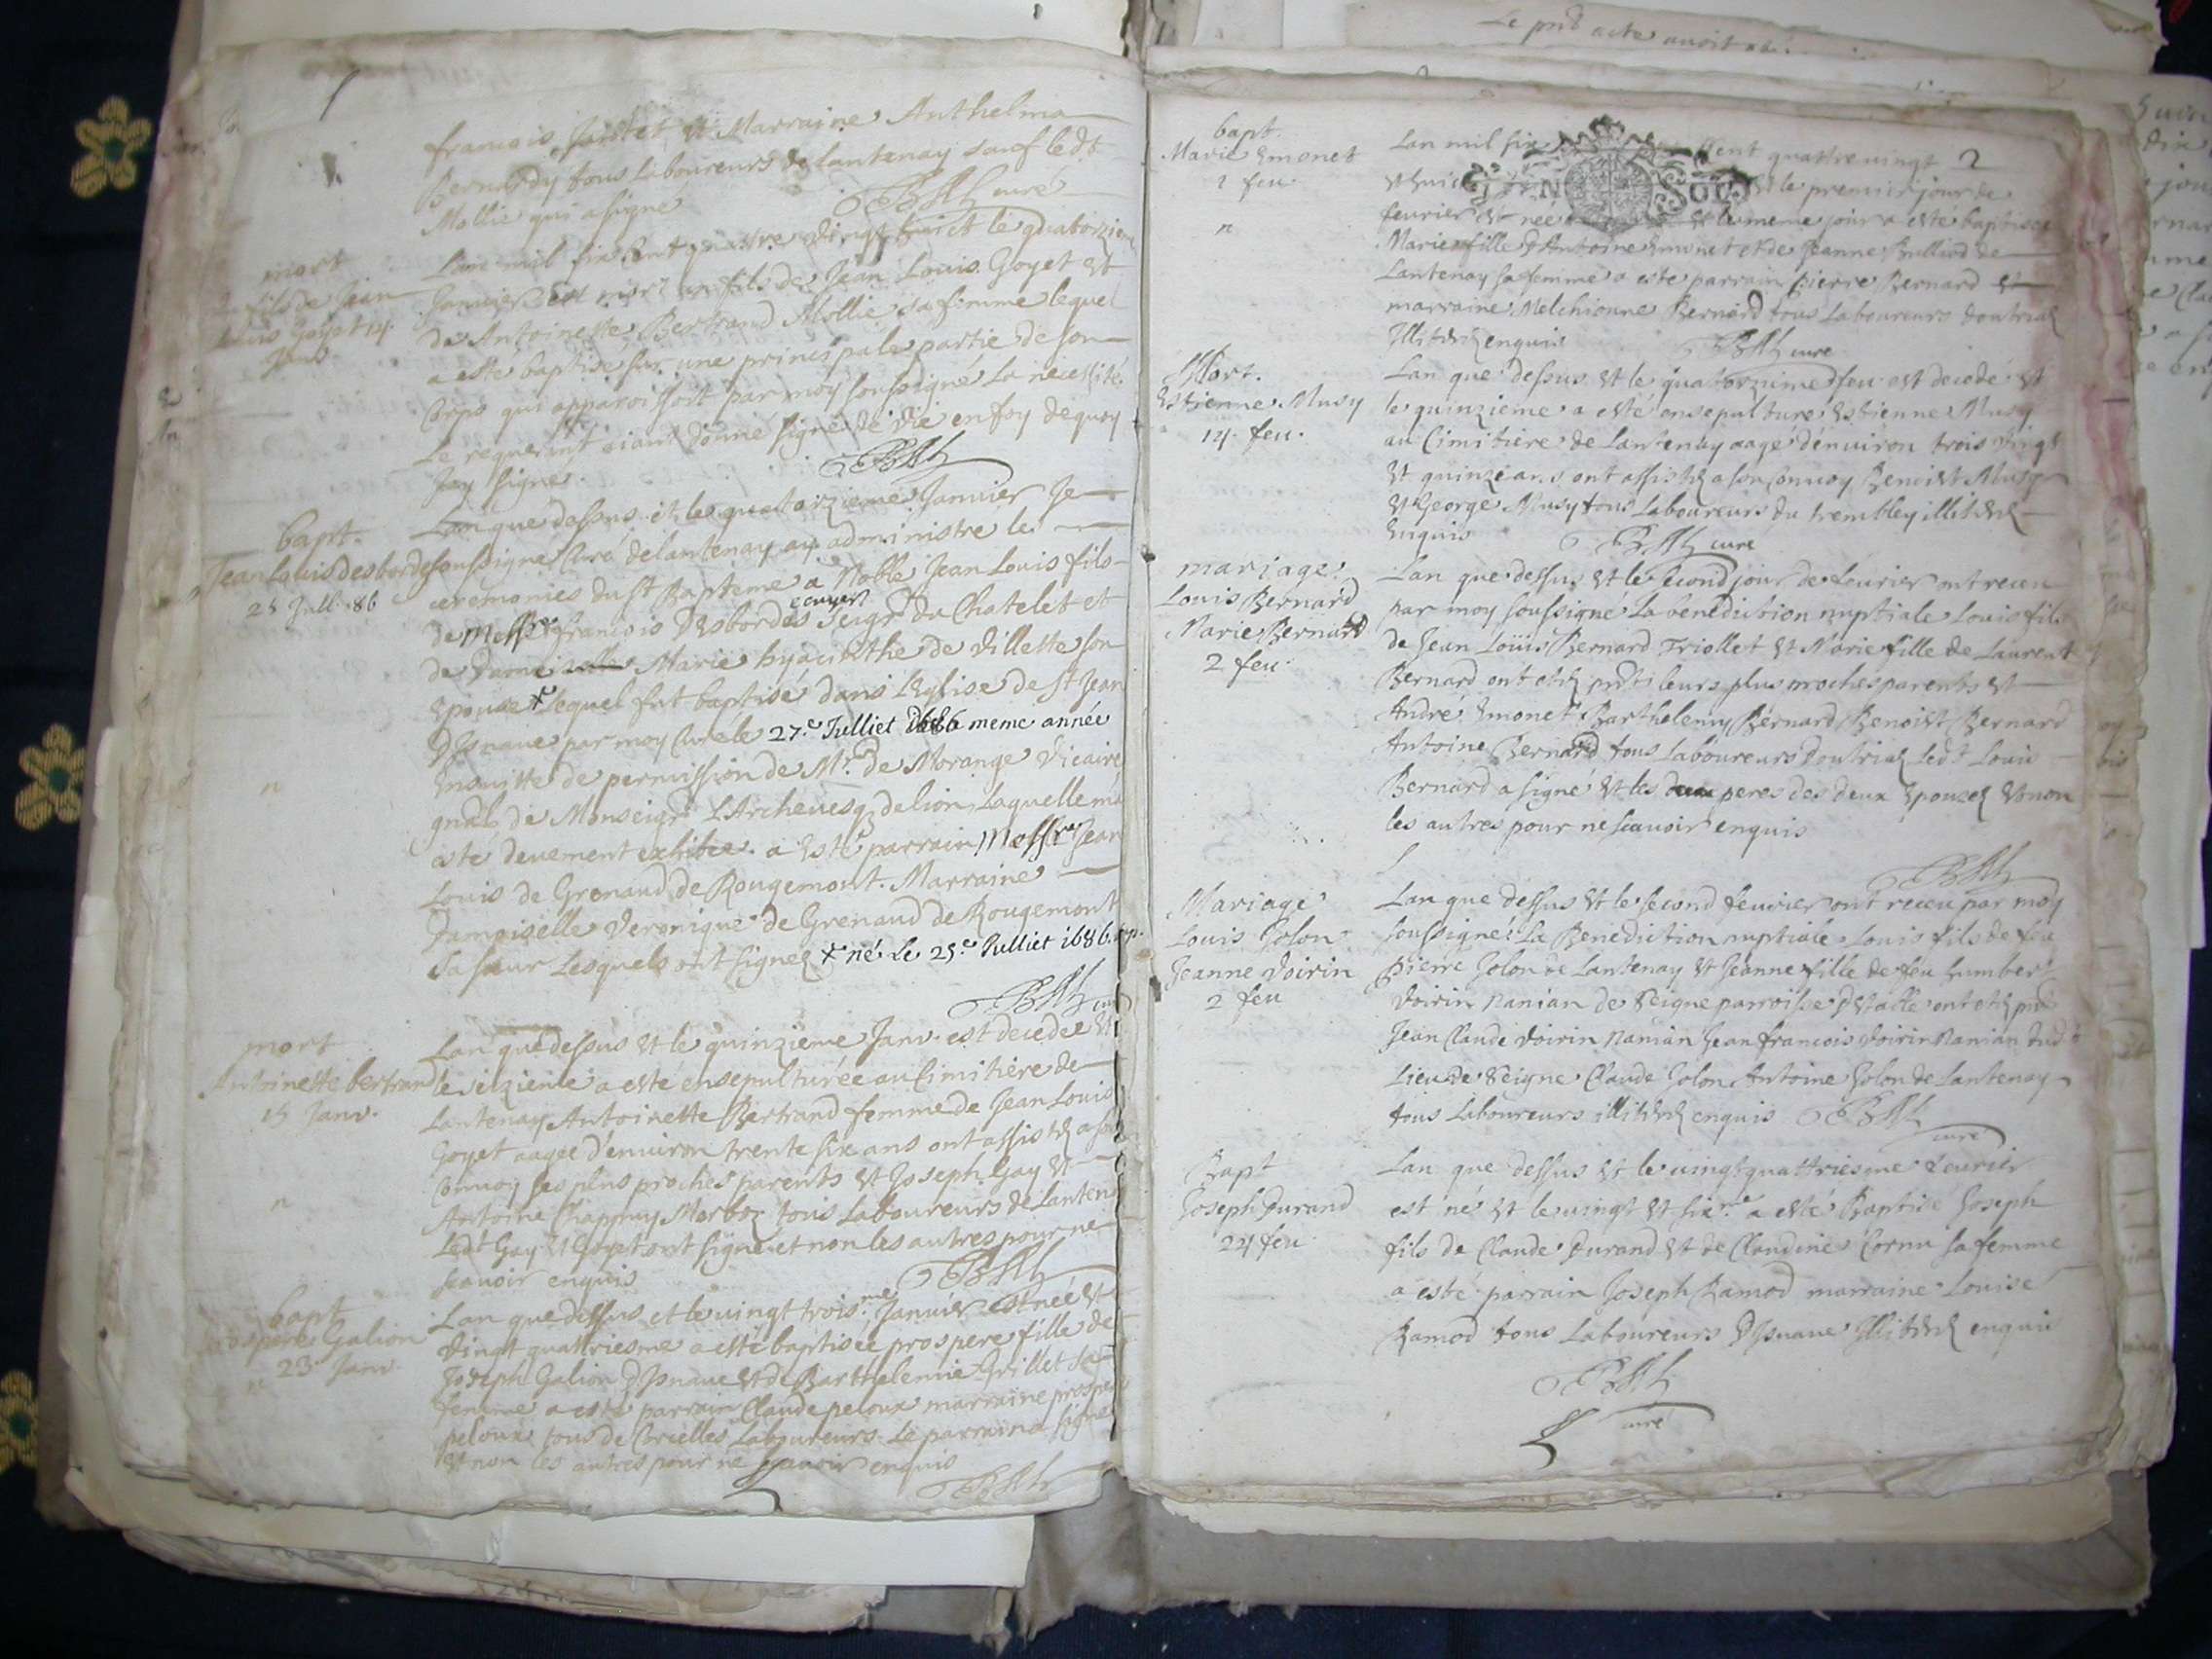 francois Jantet et Marraine Anthelma
Bernardy tous Laboureurs de lantenay sauf ledt
Mollie qui asigné
curé
mort
fils de Jean
Louis Goyet 14
Janv
Lan mil six cent quatre vingt huict le quatorzieme
Janvier est mort un fils de Jean Louis Goyet et
de Antoinette Bertrand Mollie sa femme lequel
a esté baptise sur une principale partie de son
Corps qui apparoissoit par moy soussigné La necessité
le requerant aiant donné signe de vie en foy dequoy
Jay signé
bapt.
Jean Louis desbordes
25 Jull. 86
Lan que dessus et les quatorzieme Janvier Je
soussigne Curé delantenay ay administre les
ceremonies du st Bapteme a Noble Jean Louis fils
ecuyer
de Messre francois Desbordes seigr du Chatelet et
de Dame Marie hyacinthe de Villette son
Epouse + lequel fut baptisé dans L'Eglise de St Jean
D'Isnave par moy Curé le 27.e Julliet 1686 meme année
Ensuitte de permission de Mr. de Morange Vicaire
gnal de Monseigr L'Archevesq de lion Laquelle ma
este deuement exhibee a Esté parrain Messre Jean
Louis de Grenaud de Rougemont. Marraine
Damoiselle Veronique de Grenaud de Rougemont
Sa sœur Lesquels ont signez + né Le 25.e Julliet 1686.
mort
Antoinette bertrand
15 Janv.
n
Lan que dessus et le quinzieme Janv. est decedee et
le seizieme a esté ensepulturée au Cimitiere de
Lantenay Antoinette Bertrand femme de Jean Louis
Goyet aagée d'environ trente six ans ont assistez a son
Convoy ses plus proches parents et Joseph Gay et
Antoine Chappuy Morboz tous Laboureurs de Lantenay
Ledt Gay et Goyet ont signé et non les autres pour ne
scavoir enquis
bapt
prospere Galion
23 Janv.
n
Lan que dessus et le vingt trois.me Janvier est née et
Vingt quattriesme a esté baptisée prospere fille de
Joseph Galion D'Isnave et de Barthelemie Grillet sa
femme a esté parrain Claude peloux marraine prospere
peloux tous de Corcelles Laboureurs Le parrain a signé
et non les autres pour ne scavoir enquis
Le pnt acte avoit
bapt.
Marie Emonet
1 feu
n
Lan mil six Cent quattre vingt 2
et huict et le premier jour de
feurier est née et le meme jour a esté baptisee
Marie fille d'Antoine Emonet et de Jeanne Bulliod de
Lantenay sa femme a esté parrain pierre Bernard et
marraine Melchionne Bernard tous Laboureurs doutriaz
Illiterez enquis
curé
Mort.
Estienne Musy
14. feu.
Lan que dessus et le quatorzieme feu. est decedé et
le quinzieme a esté ensepulturé Estienne Musy
au Cimitiere de Lantenay aagé d'environ trois vingt
et quinze ans ont assistez a son Convoy Benoist Musy
et George Musy tous Laboureurs du trembley illiterez
Enquis
curé
mariage
Louis Bernard
Marie Bernard
2 feu.
Lan que dessus et le second jour de feurier ont receu
par moy soussigné La benediction nuptiale Louis fils
de Jean Louis Bernard Triollet et Marie fille de Laurent
Bernard ont etez pnts leurs plus proches parents et
André Emonet Barthelemy Bernard Benoist Bernard
Antoine Bernard tous Laboureurs Doutriaz Ledt Louis
Bernard a signé et les deux peres des deux Epouzez et non
les autres pour ne scauoir enquis
Mariage
Louis Jolon
Jeanne Voirin
2 feu
Lan que dessus et le second feurier ont receu par moy
soussigné La Benediction nuptiale Louis fils de feu
pierre Jolon de Lantenay et Jeanne fille de feu humbert
Voirin Nanian de Seigne parroisse ont etez pnt
Jean Claude Voirin Nanian Jean francois Voirin Nanian dudt
Lieu de Seigne Claude Jolon Antoine Jolon de Lantenay
tous Laboureurs illiterez enquis
curé
Bapt
Joseph Durand
24 feu
Lan que dessus et le vingt quattriesme feurier
est né et le vingt et six.e a esté Baptisé Joseph
fils de Claude Durand et de Claudine Cornu sa femme
a esté parrain Joseph Ramod marraine Louise
Ramod tous Laboureurs D'Isnave Illiterez enquis
curé